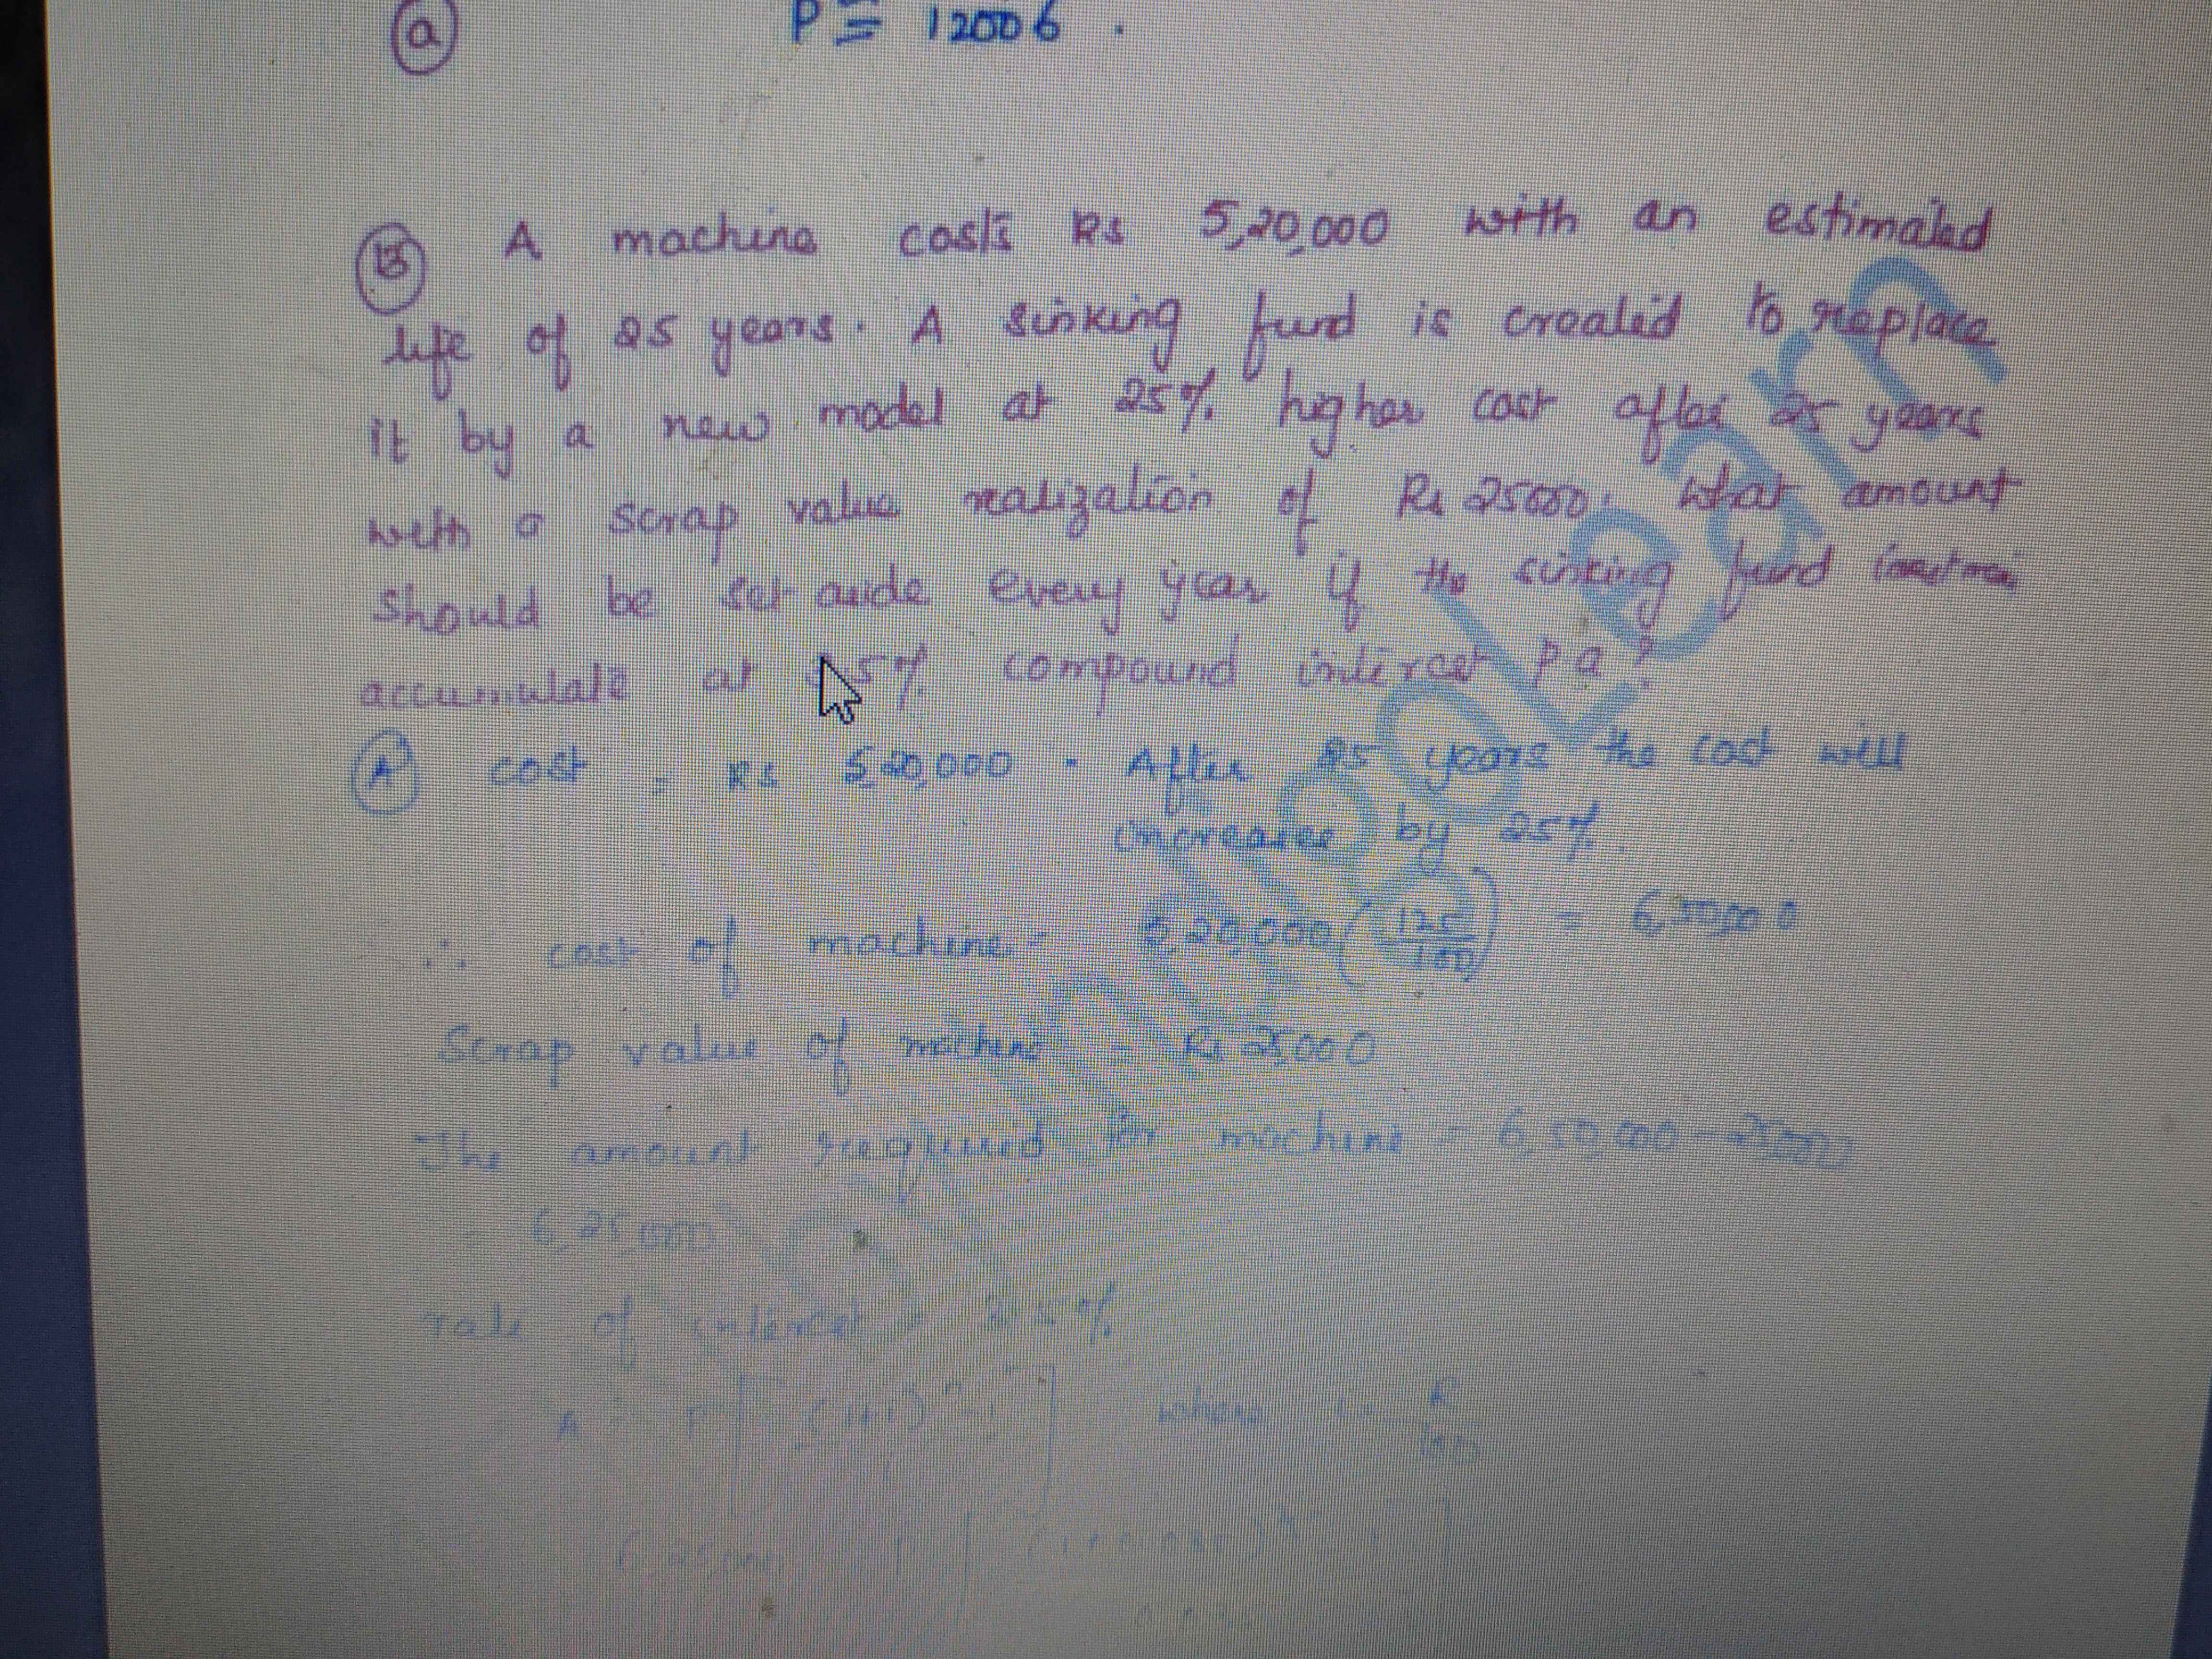 (a) P = 12006.
(B) A machine costs Rs 5,20,000 with an estimated
life of 25 years. A sinking fund is created to replace
it by a new model at 25% higher cost after 25 years
with a scrap value realization of Rs 25000. What amount
should be set aside every year if the sinking fund
accumulate at 5% compound interest p a?
(A) cost = Rs 5,20,000. After 25 years the cost will
increases by 25%.
∴ cost of machine = 5,20,000 (125/100) = 6,50,000
Scrap value of machine = Rs 25000
The amount required for machine = 6,50,000 - 25000
= 6,25,000
rate of interest =
A = P [(1+i)ⁿ - 1] where i = R/100